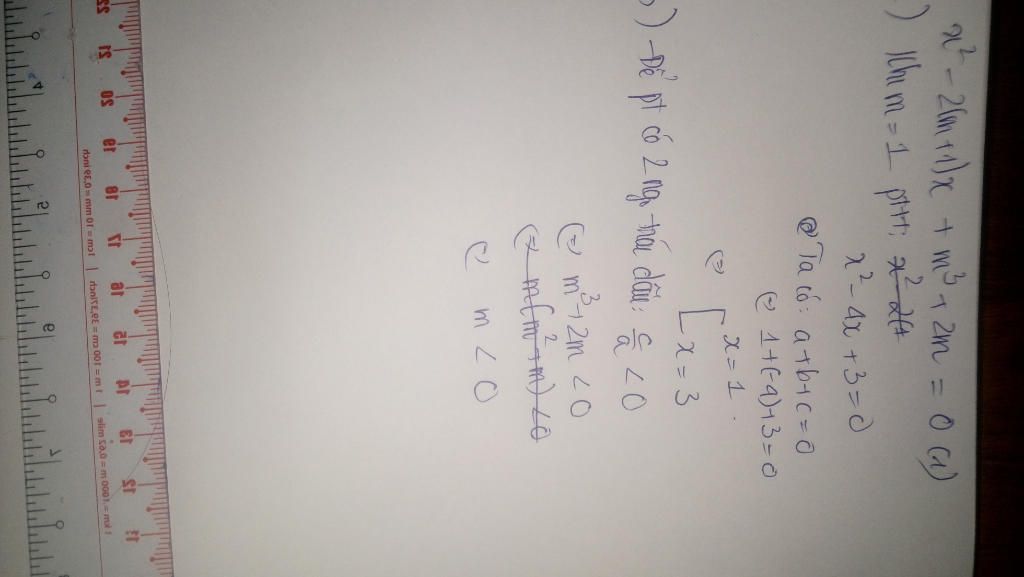 x² - 2(m+1)x + m³ + 2m = 0 (1)
) Khi m = 1 ptt: x² - 2(+
x² - 4x + 3 = 0
Ta có: a+b+c=0
(=) 1+(-4)+3=0
(=) [ x = 1.
x = 3
) - Để pt có 2 ngo trái dấu: c/a < 0
(=) m³+2m < 0
(=) m(m²+m) < 0
(=) m < 0
22 21 20 19 18 17 16 15 14 13 12 11
1cm = 10 mm = 0,39 inch | 1 m = 100 cm = 39,37inch | 1 km = 1000 m = 0.62 mile
4 5 6 7